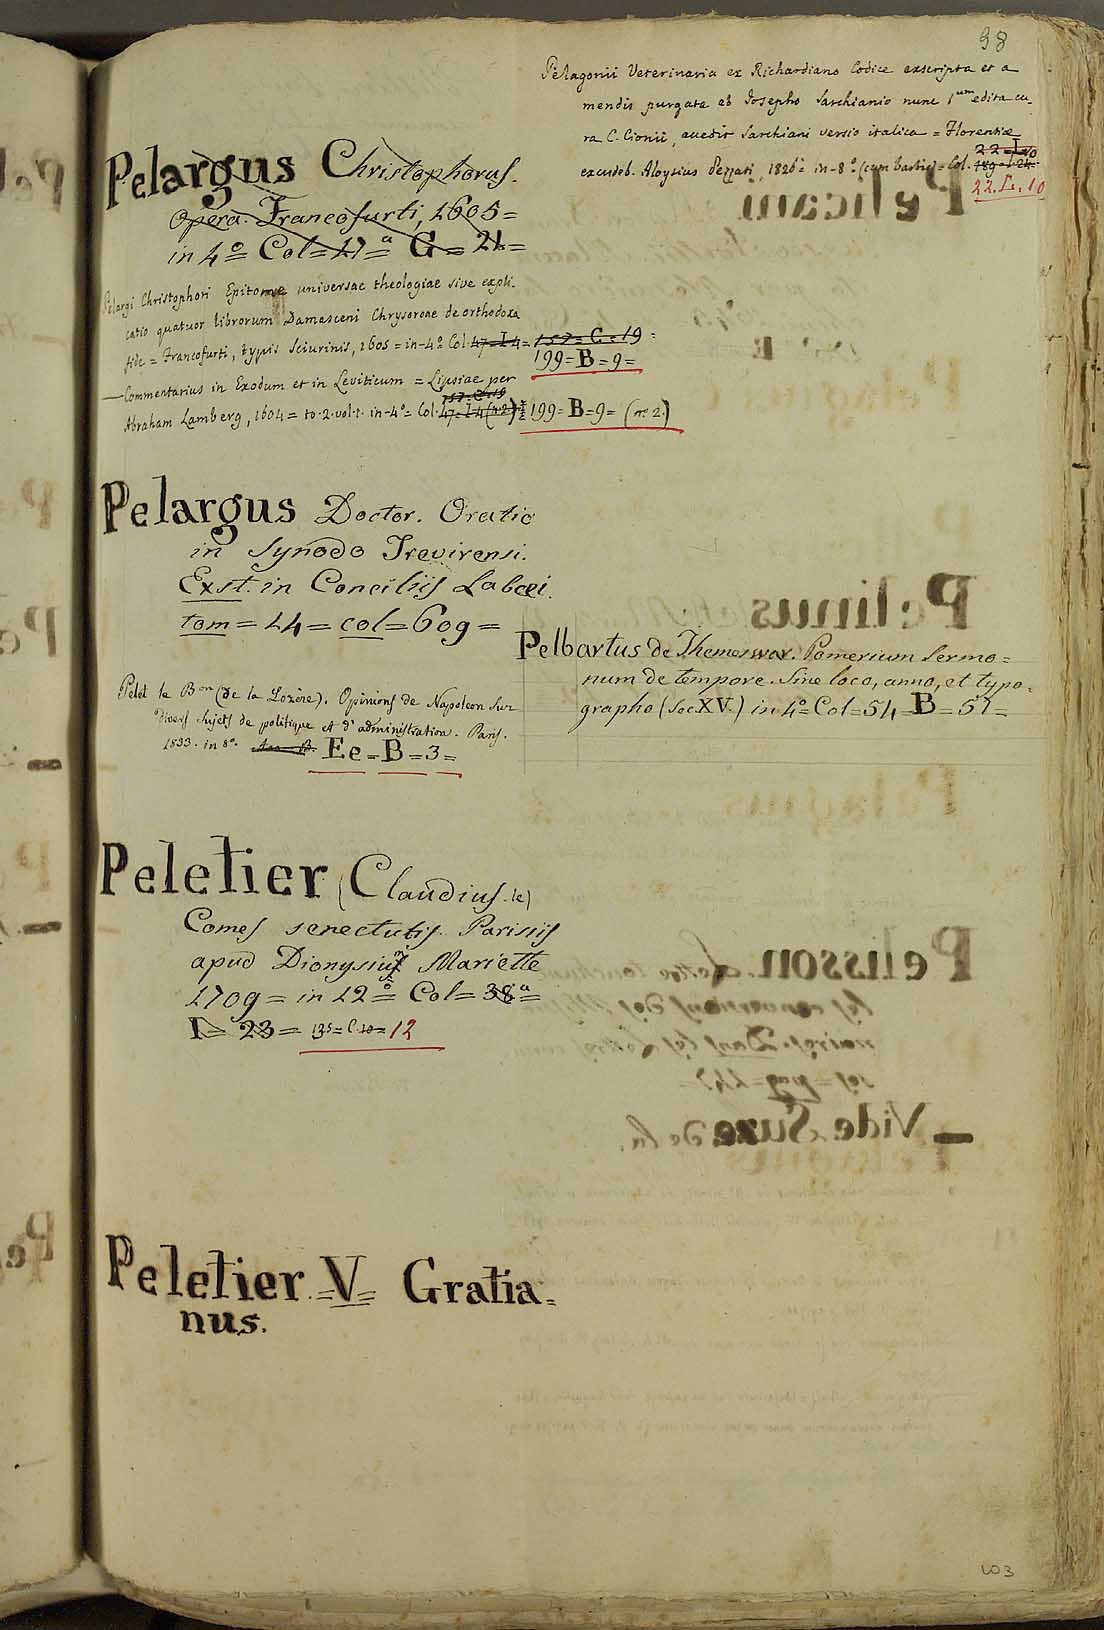 98
Pelagonii Veterinaria ex Richardiano Codice exscripta et a
mendis purgata ab Josepho Sarchianio nunc 1um edita cu-
ra C. Cionii, accedit Sarchiani versio italica = Florentiae
excudeb. Aloysius Pezzati, 1826 = in-8º = Col.
22. L. 10
Pelargus Christophorus.
Opera. Francofurti, 1605=
in 4º = Col = 47ª = G = 21 =
Pelargi Christophori Epitome universae theologiae sive expli-
catio quatuor librorum Damasceni Chrysoroae de orthodoxa
fide = Francofurti, typis Sciurinis, 1605 = in-4º Col. 47 = I 4 = 157 = C = 19 =
199 = B = 9 =
— Commentarius in Exodum et in Leviticum = Lipsiae per
157. C. 19
Abraham Lamberg, 1604 = to. 2. vol. 1. in-4º = Col. 47 = I 4 (nº 2) = 199 = B = 9 = (nº 2.)
Pelargus Doctor. Oratio
in Synodo Trevirensi.
Exst. in Conciliis Labaei.
tom = 14 = col = 609 =
Pelbartus de Themeswar. Pomerium Sermo=
num de tempore. Sine loco, anno, et typo-
grapho (Sec XV.) in 4º = Col = 54 = B = 51 =
Pelet le Bon (de la Lozère). Opinions de Napoleon sur
divers sujets de politique et d'administration. Paris.
1833. in 8º. Ee = B = 3 =
Peletier (Claudius le)
Comes senectutis. Parisiis
apud Dionysium Mariette
1709 = in 12º = Col = 38ª =
I = 23 = 135 = C 10 = 12
Peletier. = V = Gratia=
nus.
103